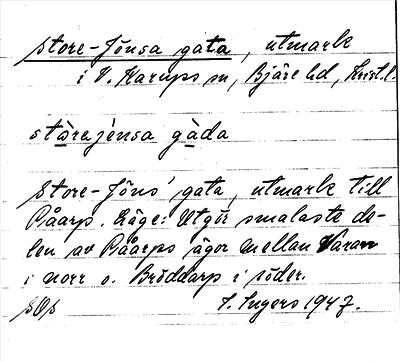 Store-Jönsa gata, utmark
i V. Karups sn, Bjäre hd, Krist. l.
stårajénsa gàda
Store-Jöns' gata, utmark till
Påarp. Läge: Utgör smalaste de-
len av Påarps ägor mellan Varan
i norr o. Bröddarp i söder.
SOS I. Ingers 1947.